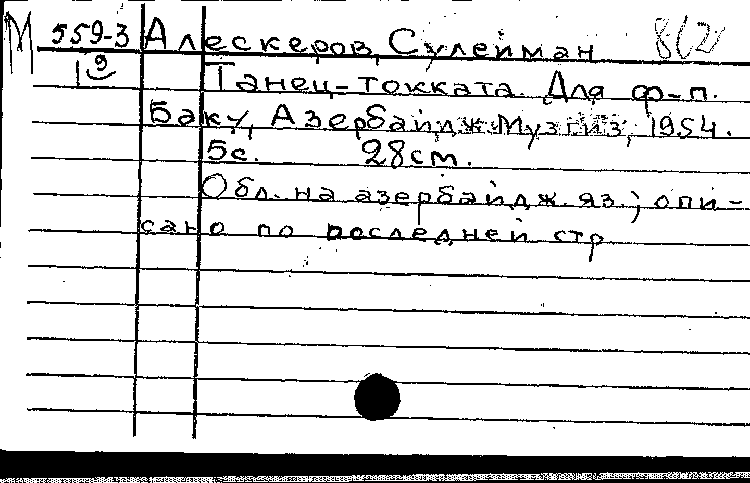 М 559-3 Алескеров, Сулейман
19 Танец-токката. Для ф-п.
Баку, Азербайдж. Музгиз, 1954.
5с. 28см.
Обл. на азербайдж. яз.; опи-
сано по последней стр